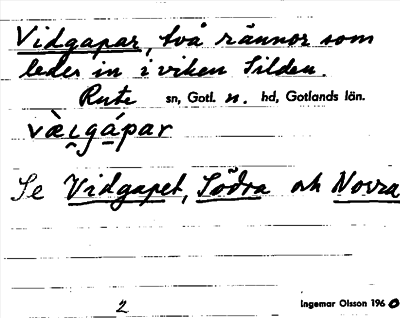 Vidgapar, två rännor som
leder in i viken Silden.
Rute sn, Gotl. n. hd, Gotlands län.
vȧ̀i̯gápar
Se Vidgapet, Södra och Norra
2
Ingemar Olsson 1960